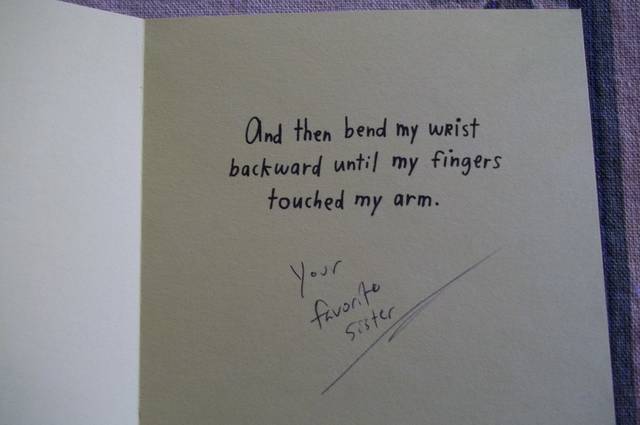 And then bend my wrist
backward until my fingers
touched my arm.
Your
favorite
sister